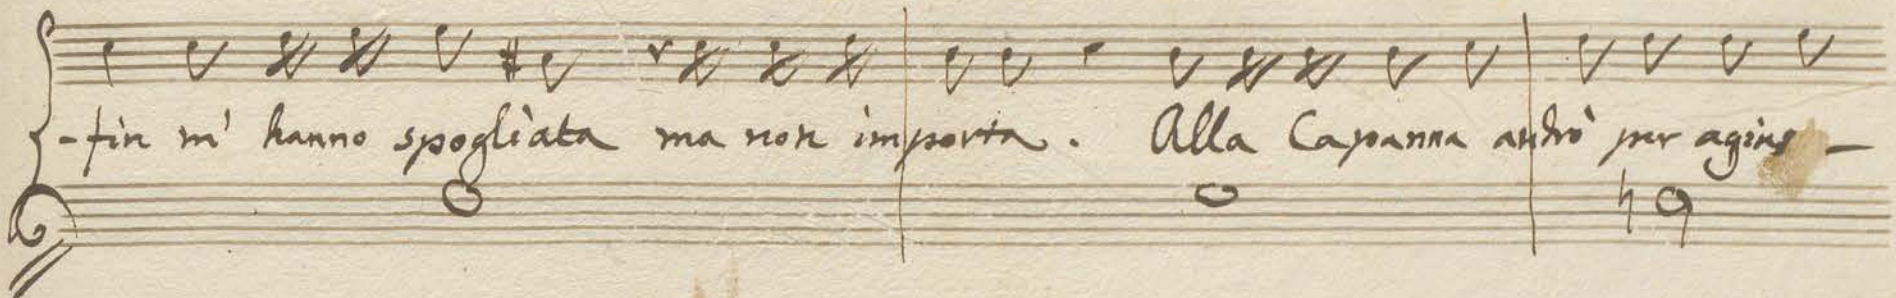 -fin m' hanno spogliata ma non importa. Alla Capanna andrò per agius-